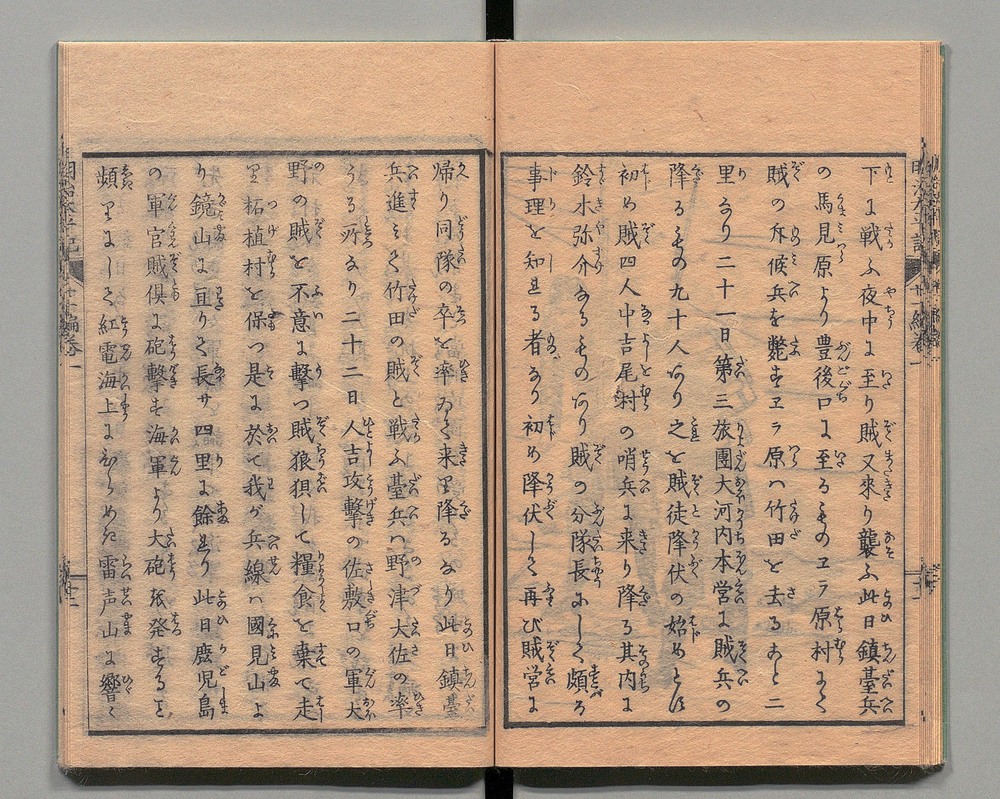 下に戦ふ夜中に至り賊又来り襲ふ此日鎮臺兵
の馬見原より豊後口に至るものヱラ原村まて
賊の斥候兵を斃すヱラ原ハ竹田を去ること二
里なり二十一日第三旅團大河内本営に賊兵の
降るもの九十人なり之を賊徒降伏の始めとす
初め賊四人中吉尾村の哨兵に来り降る其内に
鈴木弥介なるものあり賊の分隊長にして頗る
事理を知る者なり初め降伏して再び賊営に
帰り同隊の卒を率ゐて来り降るなり此日鎮臺
兵進ミて竹田の賊と戦ふ臺兵ハ野津大佐の率
うる所なり二十二日人吉攻撃の佐敷口の軍大
野の賊を不意に撃つ賊狼狽して糧食を棄て走
り柘植村を保つ是に於て我が兵線ハ國見山よ
り鏡山に亘りて長サ四里に餘れり此日鹿児島
の軍官賊倶に砲撃す海軍より大砲を発するこ
頻りにして紅電海上にひらめき雷声山に響く